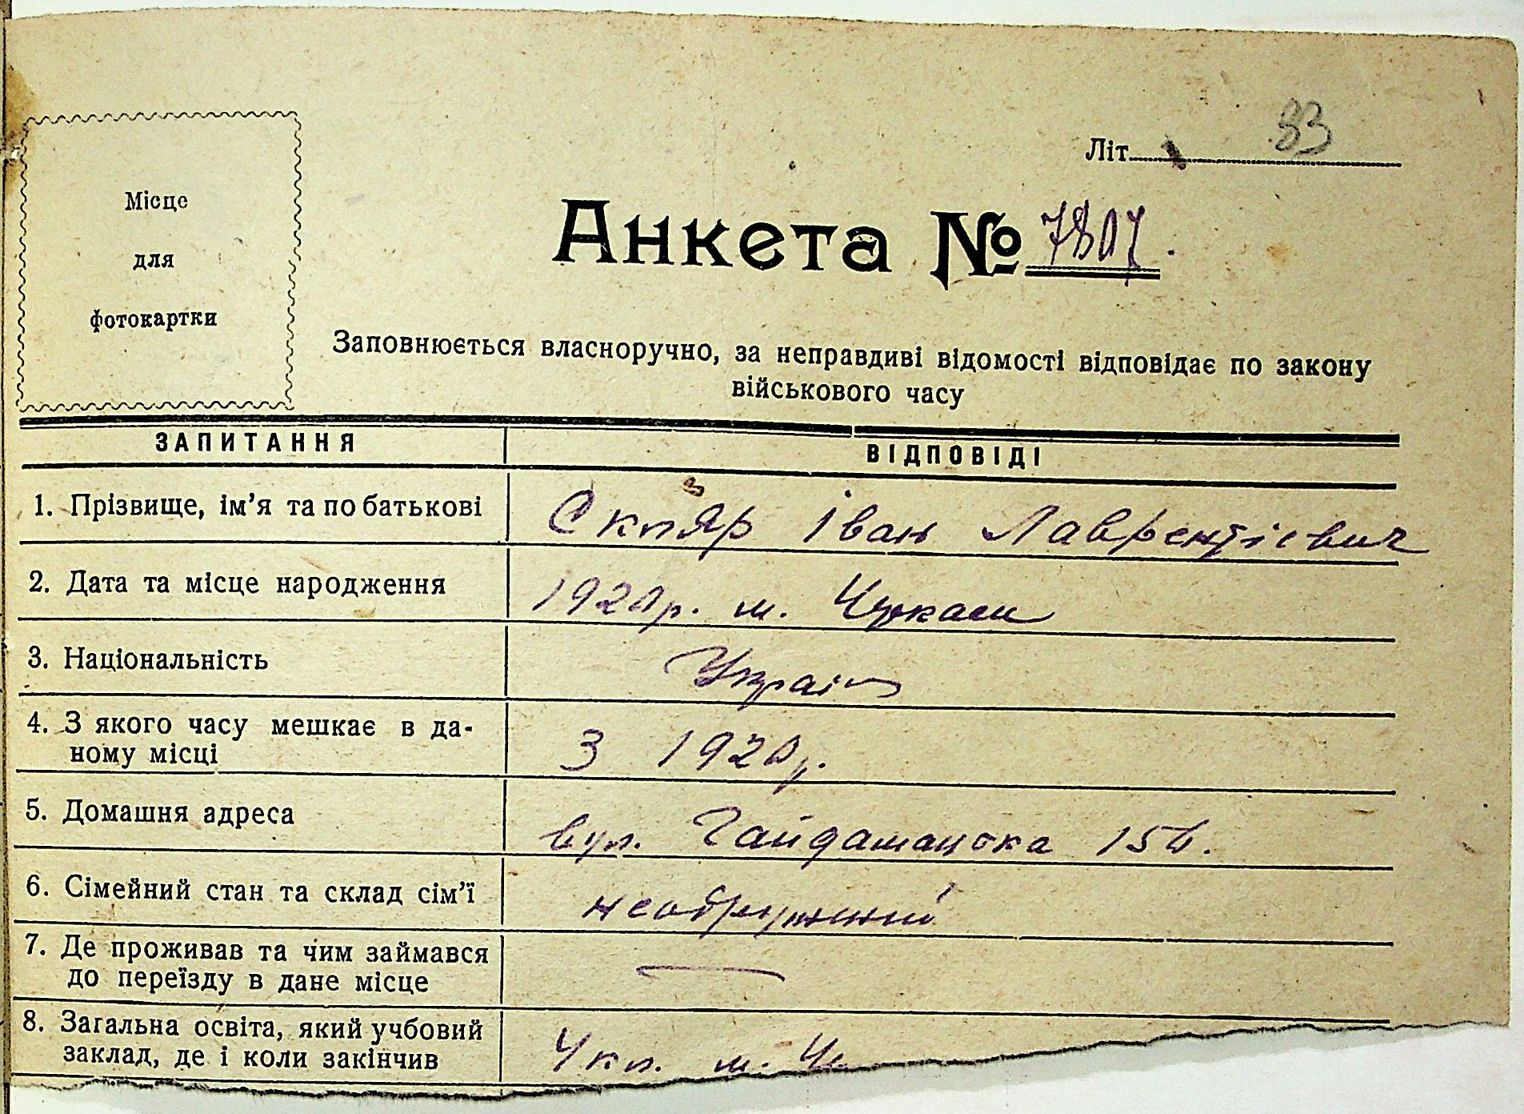 Місце
для
фотокартки
Літ. 33
Анкета № 7807.
Заповнюється власноручно, за неправдиві відомості відповідає по закону
військового часу
ЗАПИТАННЯ ВІДПОВІДІ
1. Прізвище, ім'я та по батькові Скляр Іван Лаврентієвич
2. Дата та місце народження 1920р. м. Черкаси
3. Національність Україн
4. З якого часу мешкає в да-
ному місці З 1920р.
5. Домашня адреса вул. Гайдамацька 15
6. Сімейний стан та склад сім'ї неодружений
7. Де проживав та чим займався
до переїзду в дане місце —
8. Загальна освіта, який учбовий
заклад, де і коли закінчив 4 кл. м. Че